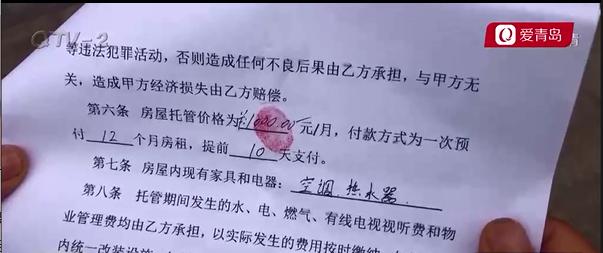 QTV-2
爱青岛
等违法犯罪活动，否则造成任何不良后果由乙方承担，与甲方无
关，造成甲方经济损失由乙方赔偿。
第六条 房屋托管价格为¥1600.00元/月，付款方式为一次预
付 12 个月房租，提前 10 天支付。
第七条 房屋内现有家具和电器：空调.热水器.
第八条 托管期间发生的水、电、燃气、有线电视视听费和物
业管理费均由乙方承担，以实际发生的费用按时缴纳
内统一改装设施